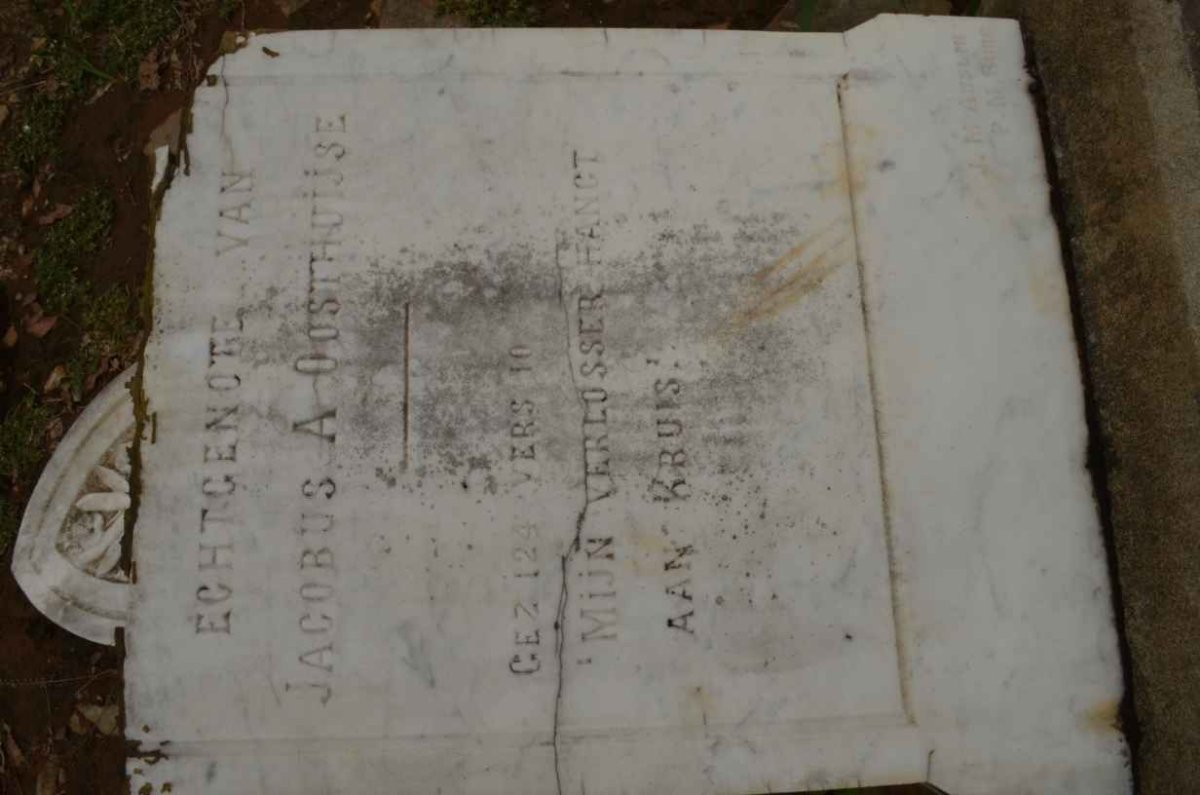 ECHTGENOTE VAN
JACOBUS A OOSTHUIJSE
GEZ 124 VERS 10
'MIJN VERLOSSER HANGT
AAN KRUIS'